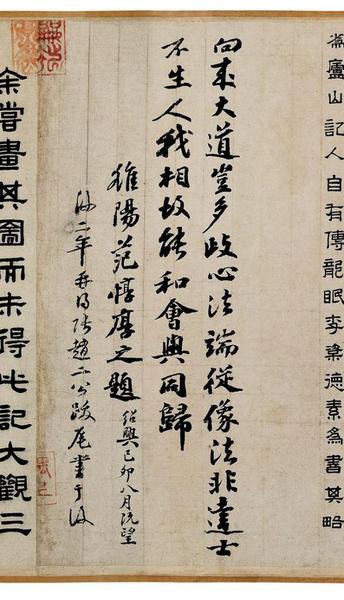 為廬山記人自有傳龍眠李楶德素為書其略
向來大道豈多歧心法端從像法非達士
不生人我相故能和會與同歸
睢陽范惇厚之題紹興己卯八月既望
後二年再得張趙二公跋尾書于後
余嘗畫其圖而未得此記大觀三